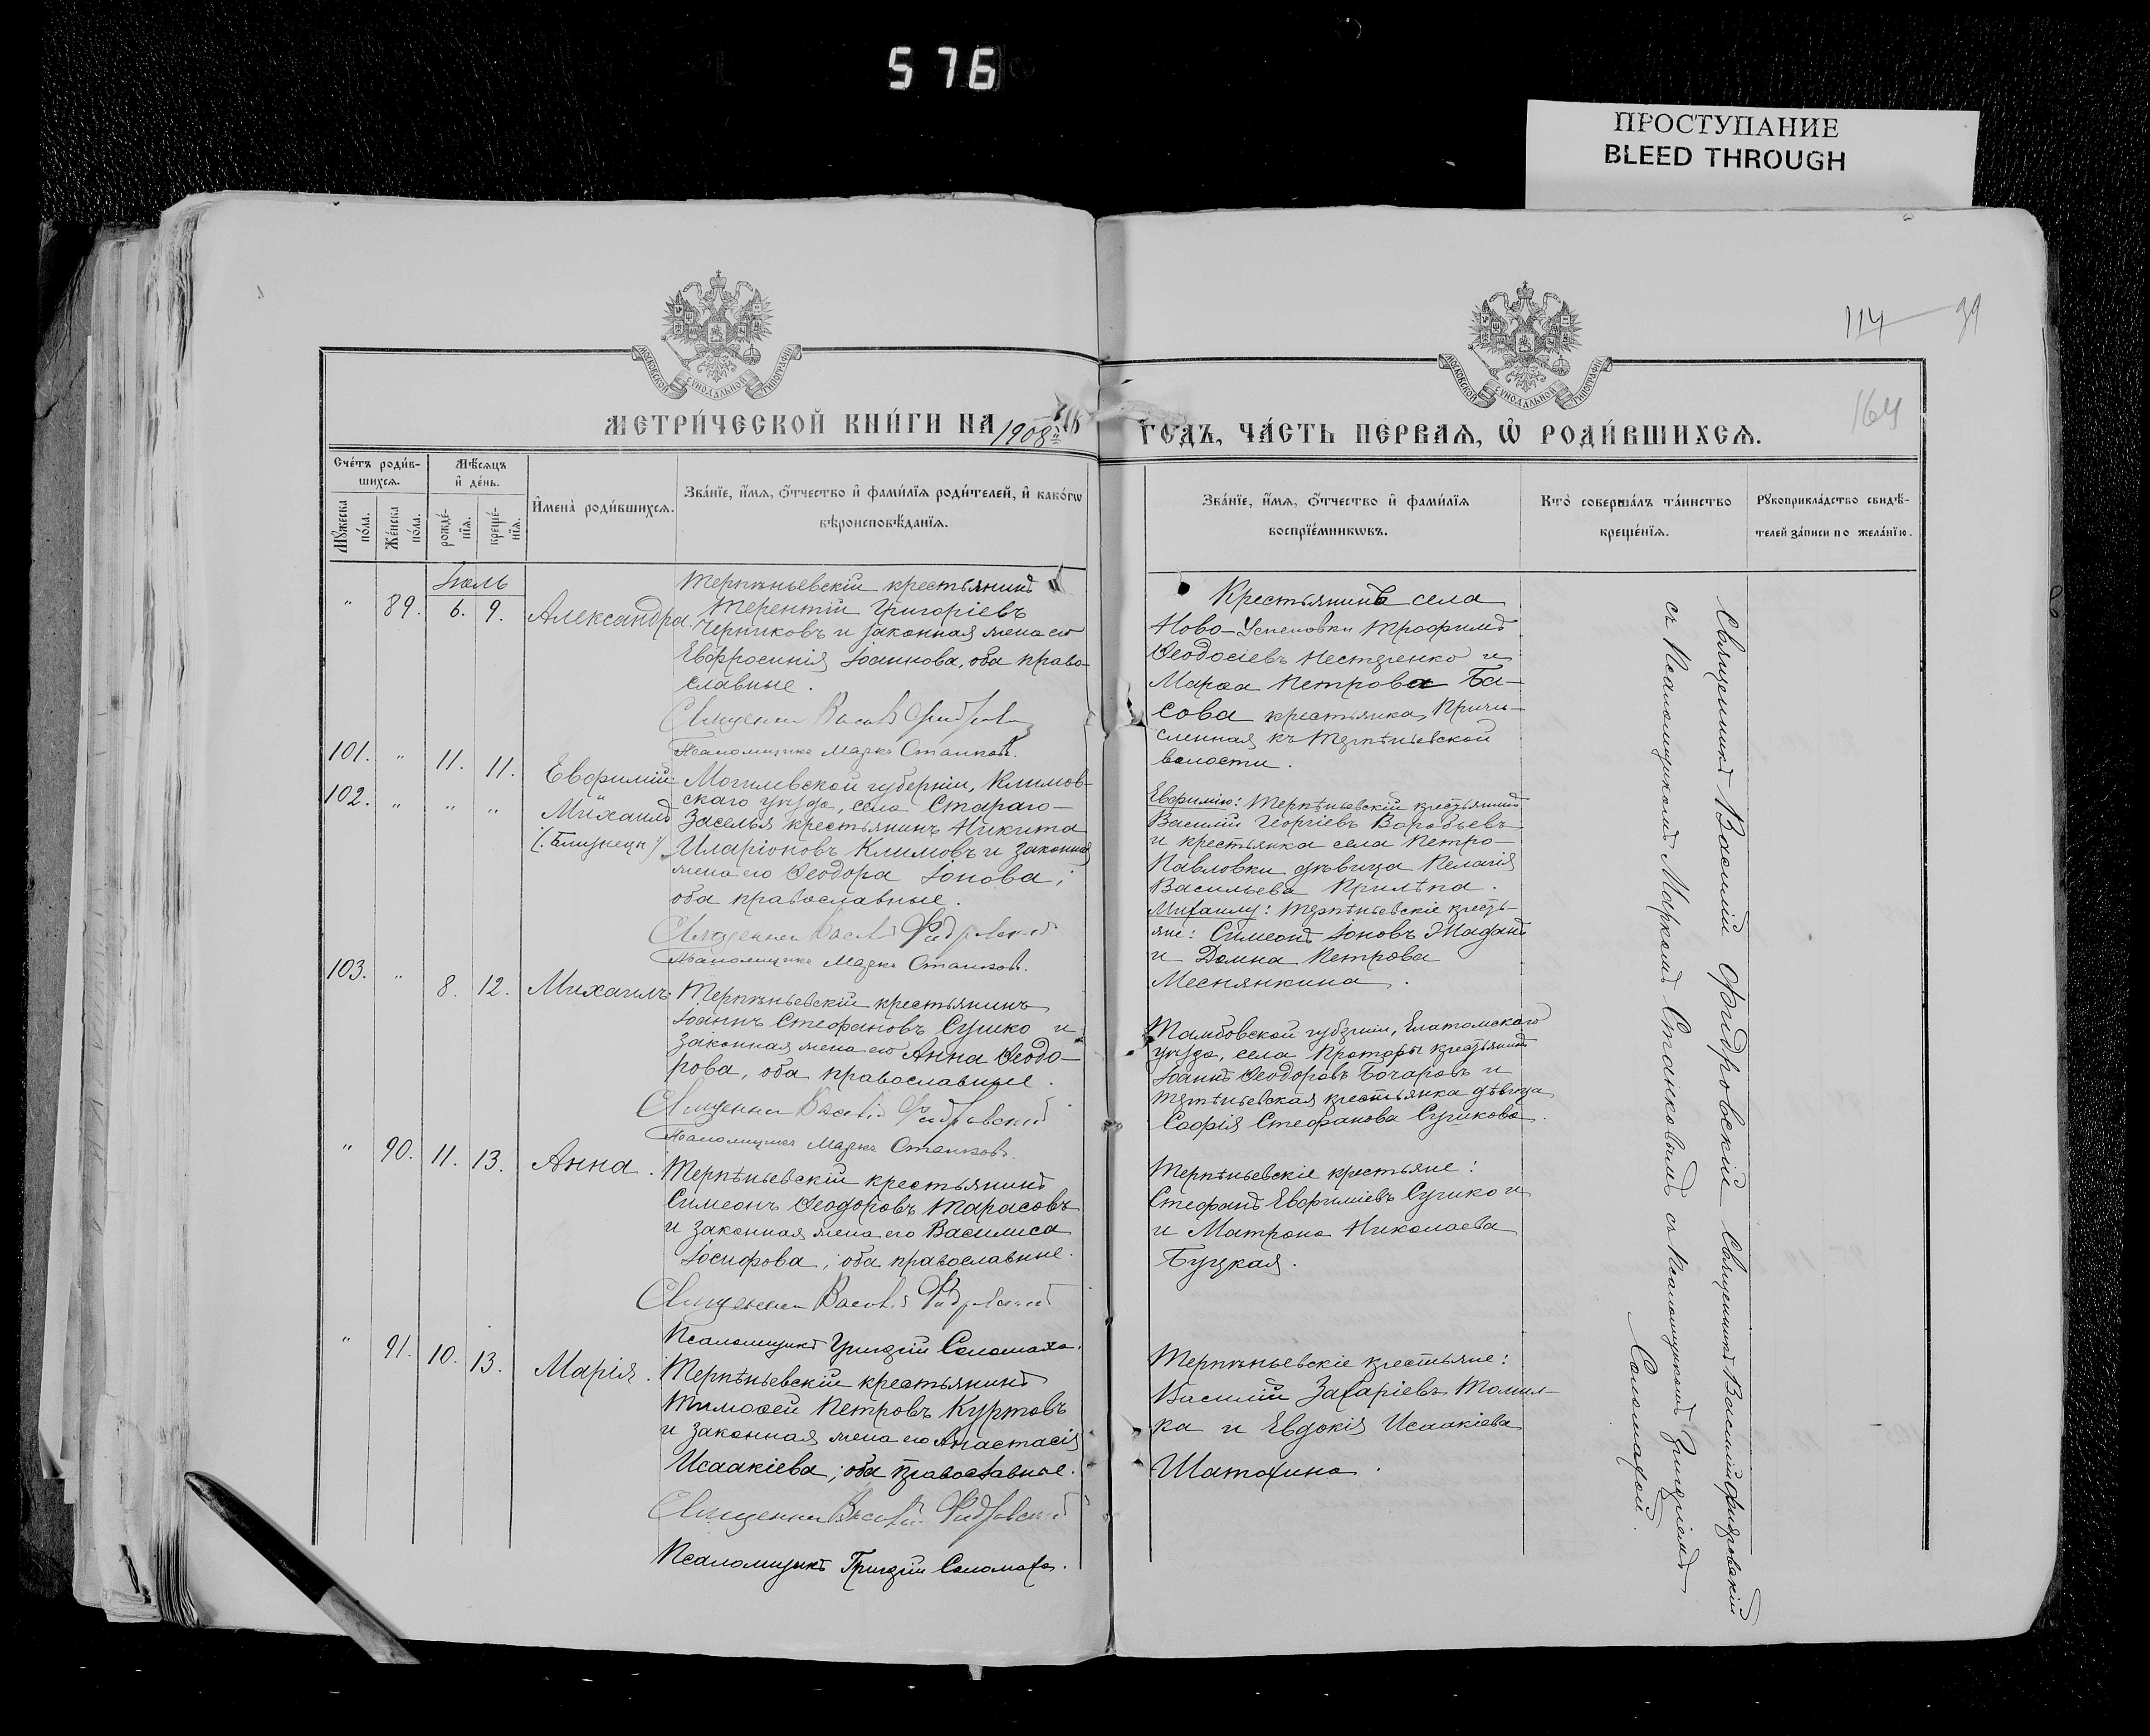 576
ПРОСТУПАНИЕ
BLEED THROUGH
114 39
164
МОСКОВСКОЙ СѴНОДАЛЬНОЙ ТИПОГРАФІИ
МОСКОВСКОЙ СѴНОДАЛЬНОЙ ТИПОГРАФІИ
МЕТРИ́ЧЕСКОЙ КНИ́ГИ НА 1908й
ГОДЪ, ЧА́СТЬ ПЕ́РВАЯ, Ѡ҆ РОДИ́ВШИХСЯ.
Сче́тъ роди́в-
шихся.
Мѣ́сяцъ
и҆ де́нь.
Мꙋ́жеска
по́ла.
Же́нска
по́ла.
рожде́-
нїя.
креще́-
нїя.
И҆мена̀ роди́вшихся.
Зва́нїе, и҆́мя, ѻ҆́тчество и҆ фами́лїя роди́телей, и҆ како́гѡ
вѣроисповѣ́данїя.
Зва́нїе, и҆́мя, ѻ҆́тчество и҆ фами́лїя
воспрїе́мникѡвъ.
Кто̀ соверша́лъ та́инство
креще́нїя.
Рꙋкоприкла́дство свидѣ́-
телей за́писи по жела́нїю.
Іюль
" 89. 6. 9. Александра.
Терпѣньевскій крестьянинъ
Терентій Григоріевъ
Черниковъ и законная жена его
Евфросинія Іоаннова, оба право-
славные.
Священник Василій Фидровский
Псаломщикъ Маркъ Станковъ.
Крестьянинъ села
Ново-Успеновки Трофимъ
Ѳеодосіевъ Нестеренко и
Марѳа Петрова Ба-
сова крестьянка, причи-
сленная къ Терпѣньевской
волости.
101. " 11. 11. Евфимій
102. " " " Михаилъ
/:Близнецы:/
Могилевской губерніи, Климов-
скаго уѣзда, села Стараго-
Заселья крестьянинъ Никита
Иларіоновъ Климовъ и законная
жена его Ѳеодора Іонова;
оба православные.
Священник Василій Фидровский
Псаломщикъ Маркъ Станковъ.
Евфимію: Терпѣньевскій крестьянинъ
Василій Георгіевъ Воробьевъ
и крестьянка села Петро-
Павловки дѣвица Пелагія
Васильева Прилѣпа.
Михаилу: Терпѣньевскіе кресть-
яне: Симеонъ Іоновъ Жаданъ
и Домна Петрова
Меснянкина.
103. " 8. 12. Михаилъ.
Терпѣньевскій крестьянинъ
Іоаннъ Стефановъ Сушко и
законная жена его Анна Ѳеодо-
рова, оба православные.
Священник Василій Фидровский
Псаломщикъ Маркъ Станковъ.
Тамбовской губерніи, Елатомскаго
уѣзда, села крестьянинъ
Іоаннъ Ѳеодоровъ Бочаровъ и
Терпѣньевская крестьянка дѣвица
Софія Стефанова Сушкова.
" 90. 11. 13. Анна.
Терпѣньевскій крестьянинъ
Симеонъ Ѳеодоровъ Тарасовъ
и законная жена его Василиса
Іосифова; оба православные.
Священник Василій Фидровский
Псаломщикъ Григорій Соломаха.
Терпѣньевскіе крестьяне:
Стефанъ Евфиміевъ Сушко и
и Матрона Николаева
Буцкая.
" 91. 10. 13. Марія.
Терпѣньевскій крестьянинъ
Тимоѳей Петровъ Куртовъ
и законная жена его Анастасія
Исаакіева; оба православные.
Священник Василій Фидровский
Псаломщикъ Григорій Соломаха.
Терпѣньевскіе крестьяне:
Василій Захаріевъ Томил-
ка и Евдокія Исаакіева
Шатохина.
Священникъ Василій Фидровскій
съ псаломщикомъ Маркомъ Станковымъ
Священникъ Василій Фидровскій
съ псаломщикомъ Григоріемъ
Соломахой.